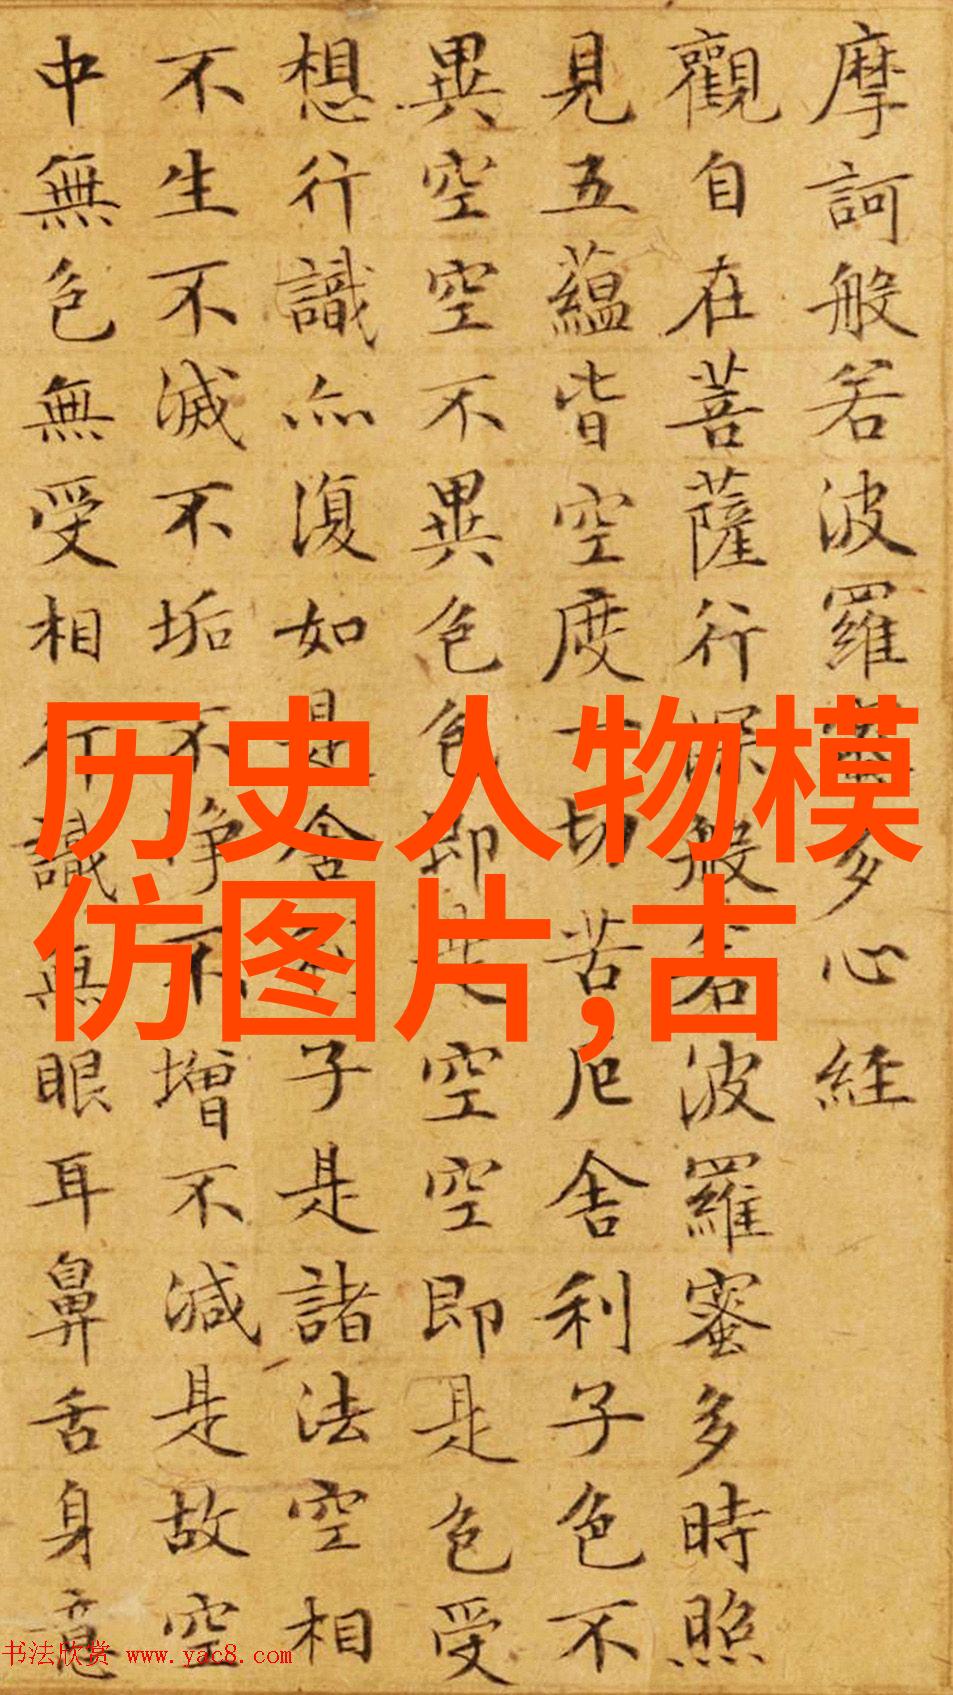 摩訶般若波羅蜜多心經
觀自在菩薩行深般若波羅蜜多時照
見五蘊皆空度一切苦厄舍利子色不
異空空不異色色即是空空即是色受
想行識亦復如是舍利子是諸法空相
不生不滅不垢不淨不增不減是故空
中無色無受相行識無眼耳鼻舌身意
历史人物模
仿图片,古
书法欣赏 www.yac8.com